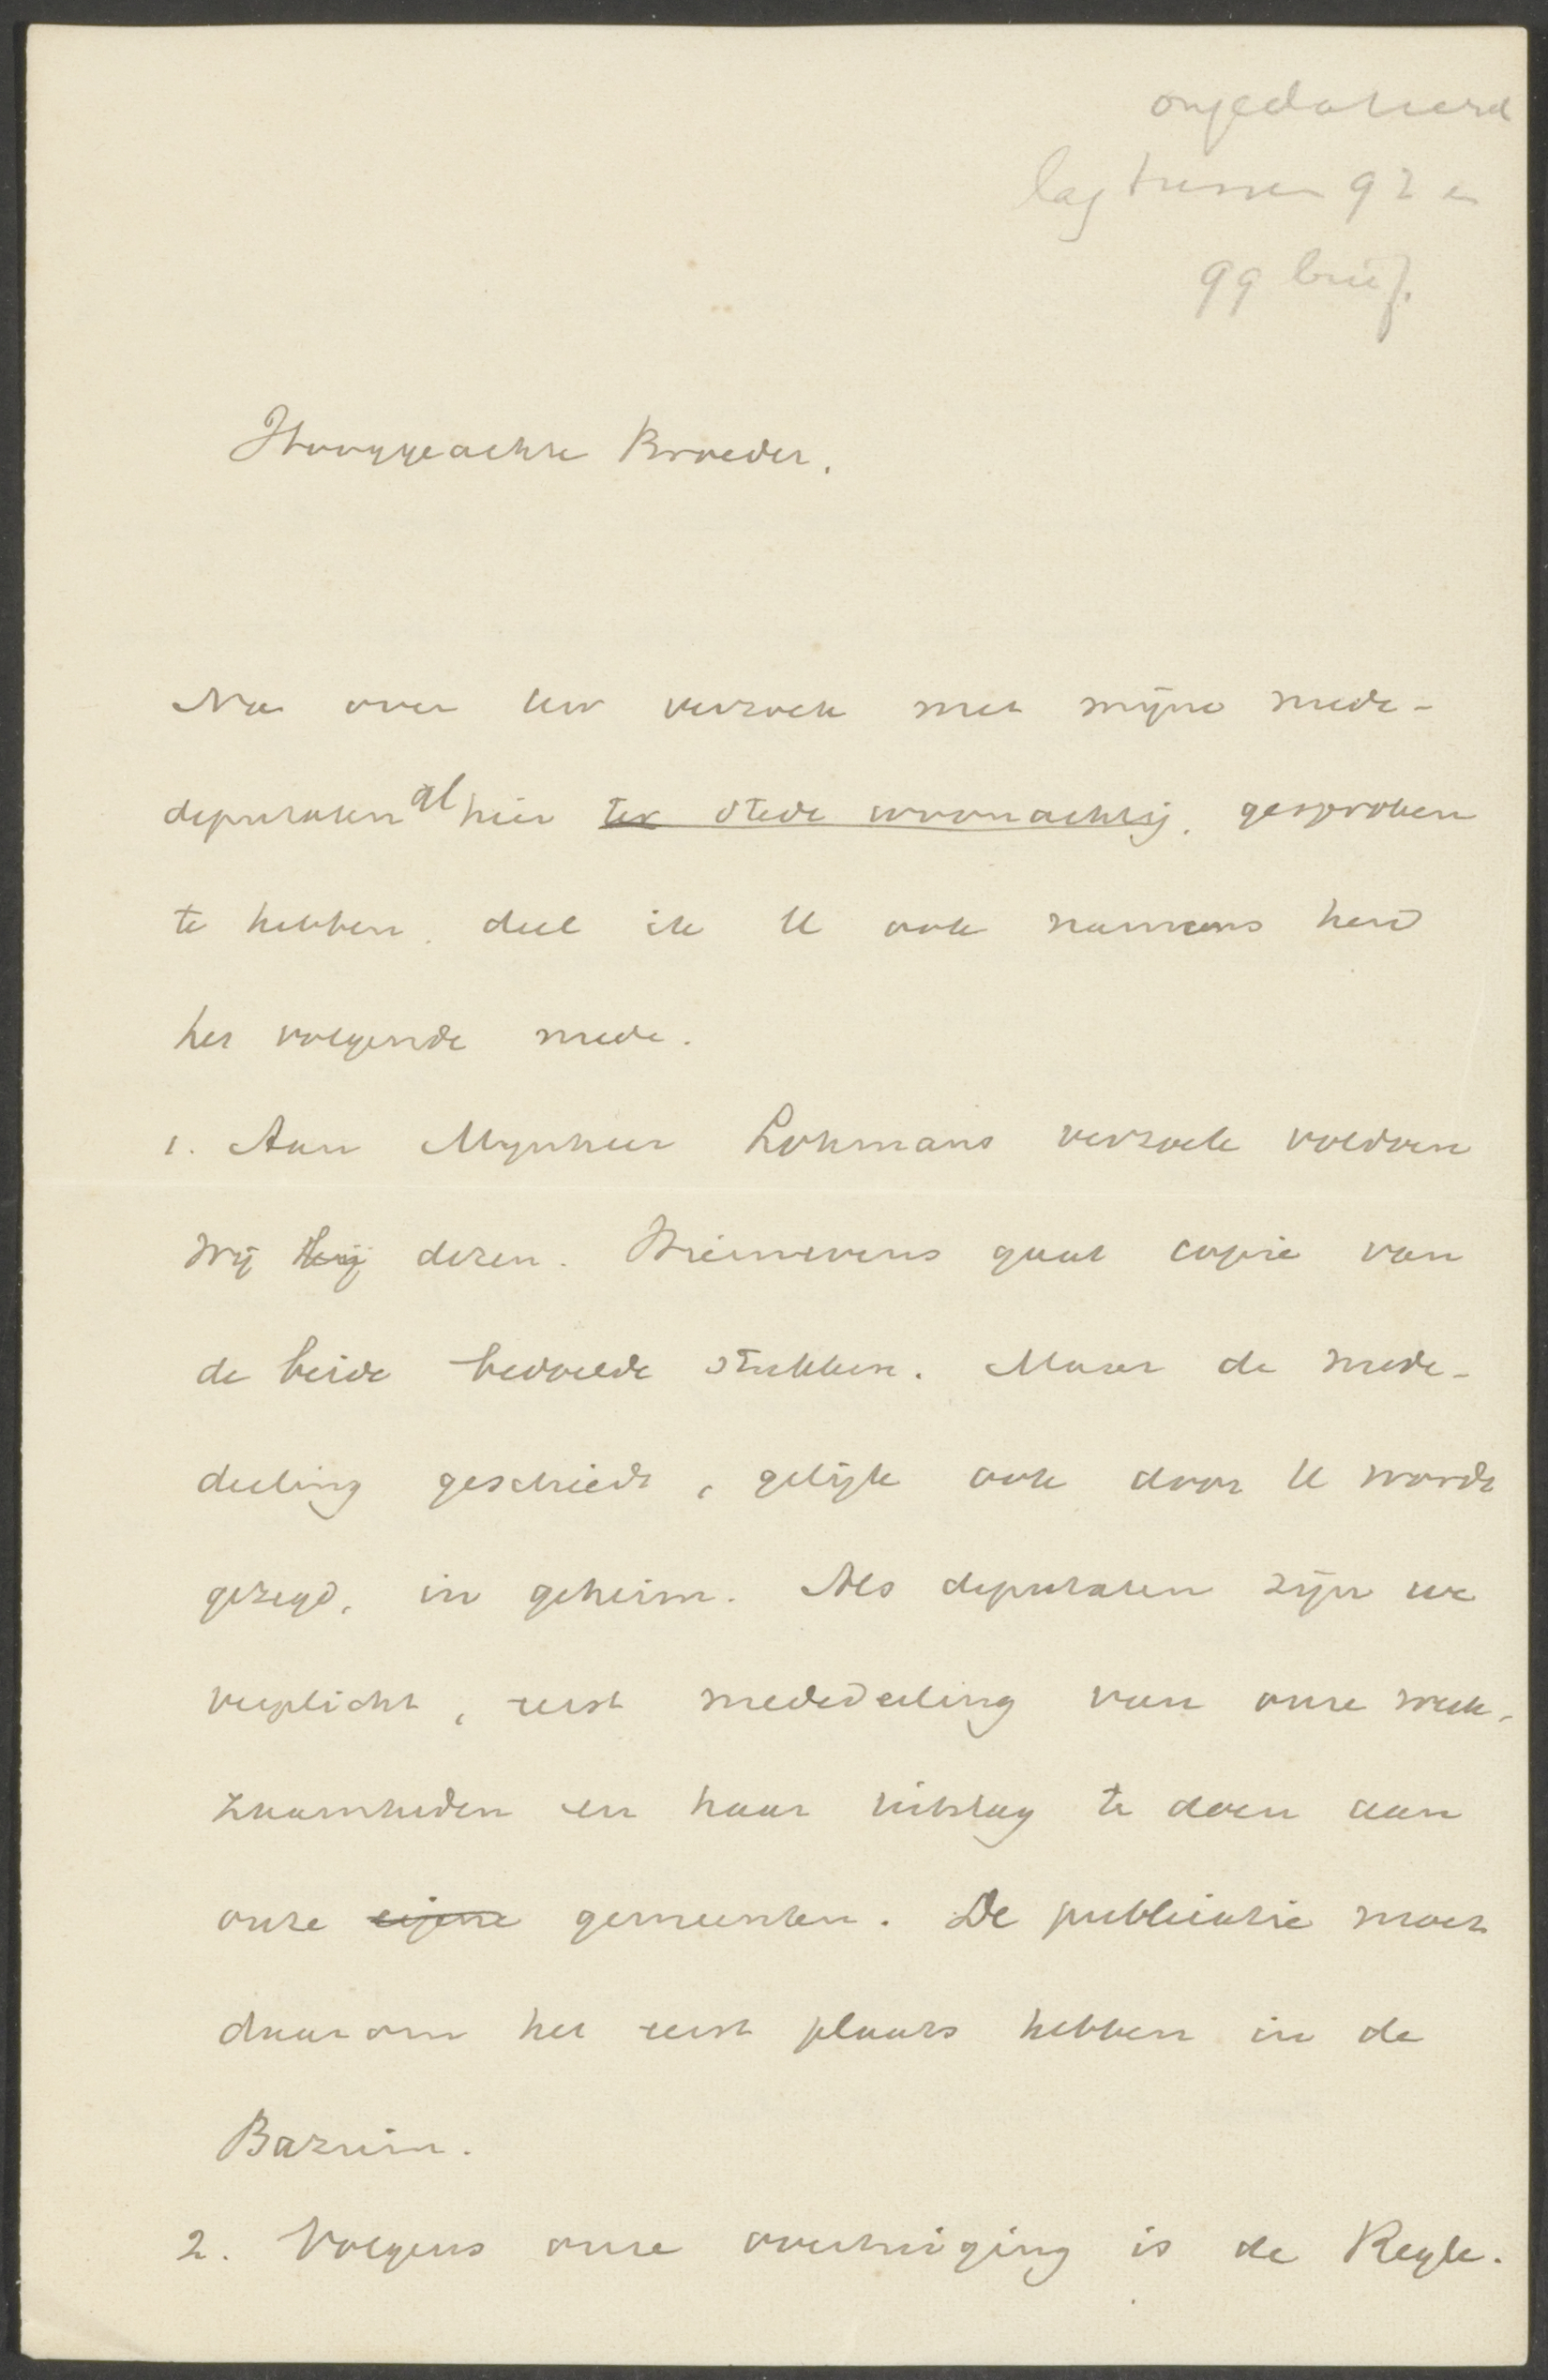 ongedateerd
lag tussen 92 en
99 brief.
Hooggeachte Broeder,
Na over Uw verzoek met mijne mede-
deputaten alhier ter stede woonachtig, gesproken
te hebben, deel ik U ook namens hen
het volgende mede.
1. Aan Mijnheer Lohmans verzoek voldoen
wij bij dezen. Hiernevens gaat copie van
de beide bedoelde stukken. Maar de mede-
deeling geschiedt, gelijk ook door U wordt
gezegd, in geheim. Als deputaten zijn we
verplicht, eerst mededeeling van onze werk-
zaamheden en haar uitslag te doen aan
onze eigene gemeenten. De publicatie moet
daarom het eerst plaats hebben in de
Bazuin.
2. Volgens onze overtuiging is de Regle-